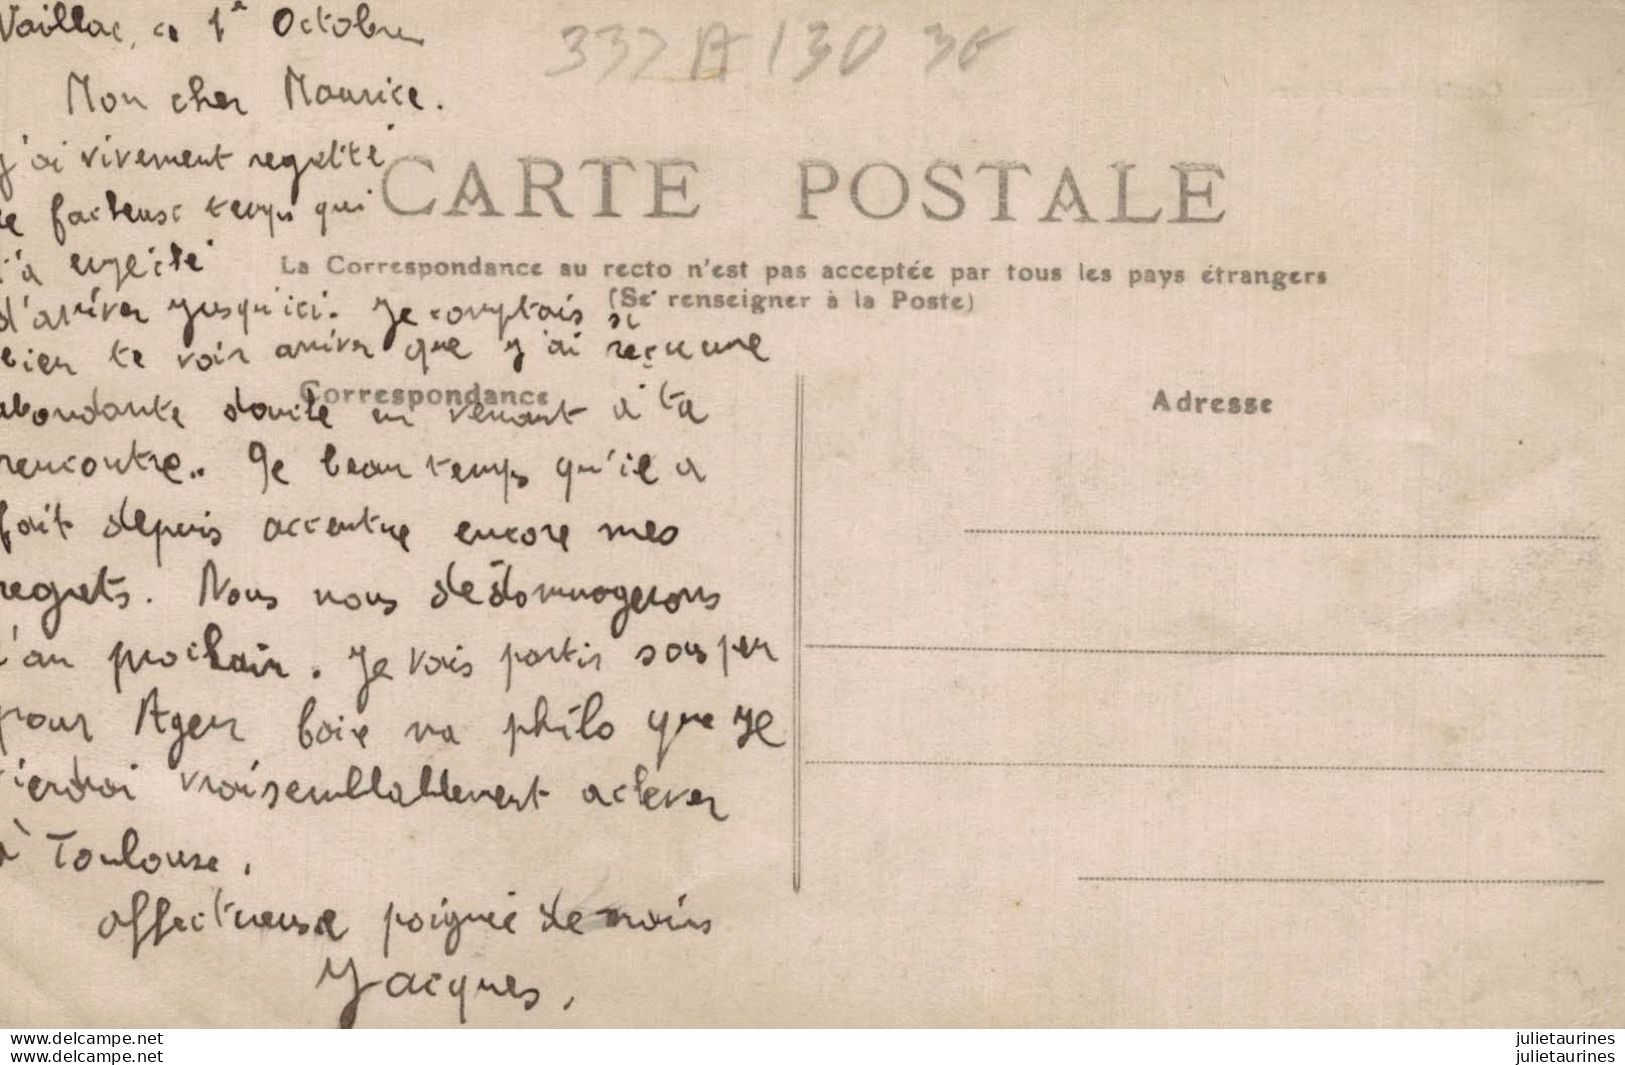 Vaillac, ce 1e Octobre
332 A 130 3€
Mon cher Maurice.
j'ai vivement regretté
CARTE POSTALE
le facheux temps qui
t'a empêché
La Correspondance au recto n'est pas acceptée par tous les pays étrangers
(Se renseigner à la Poste)
d'arriver jusqu'ici. Je comptais si
bien te voir arriver que j'ai reçu une
Correspondance
Adresse
abondante douche en venant à ta
rencontre.. Le beau temps qu'il a
fait depuis accentue encore mes
regrets. Nous nous dédommagerons
l'an prochain. Je vais partir sous peu
pour Agen faire ma philo que je
viendrai vraisemblablement achever
à Toulouse.
affectueuse poignée de mains
Jacques.
www.delcampe.net
julietaurines
www.delcampe.net
julietaurines